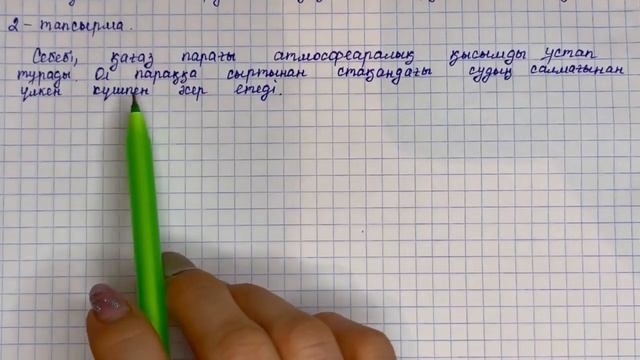 2 - тапсырма.
Себебі, қағаз парағы атмосфеаралық қысымды ұстап
тұрады. Ол параққа сыртынан стақандағы судың салмағынан
үлкен күшпен әсер етеді.